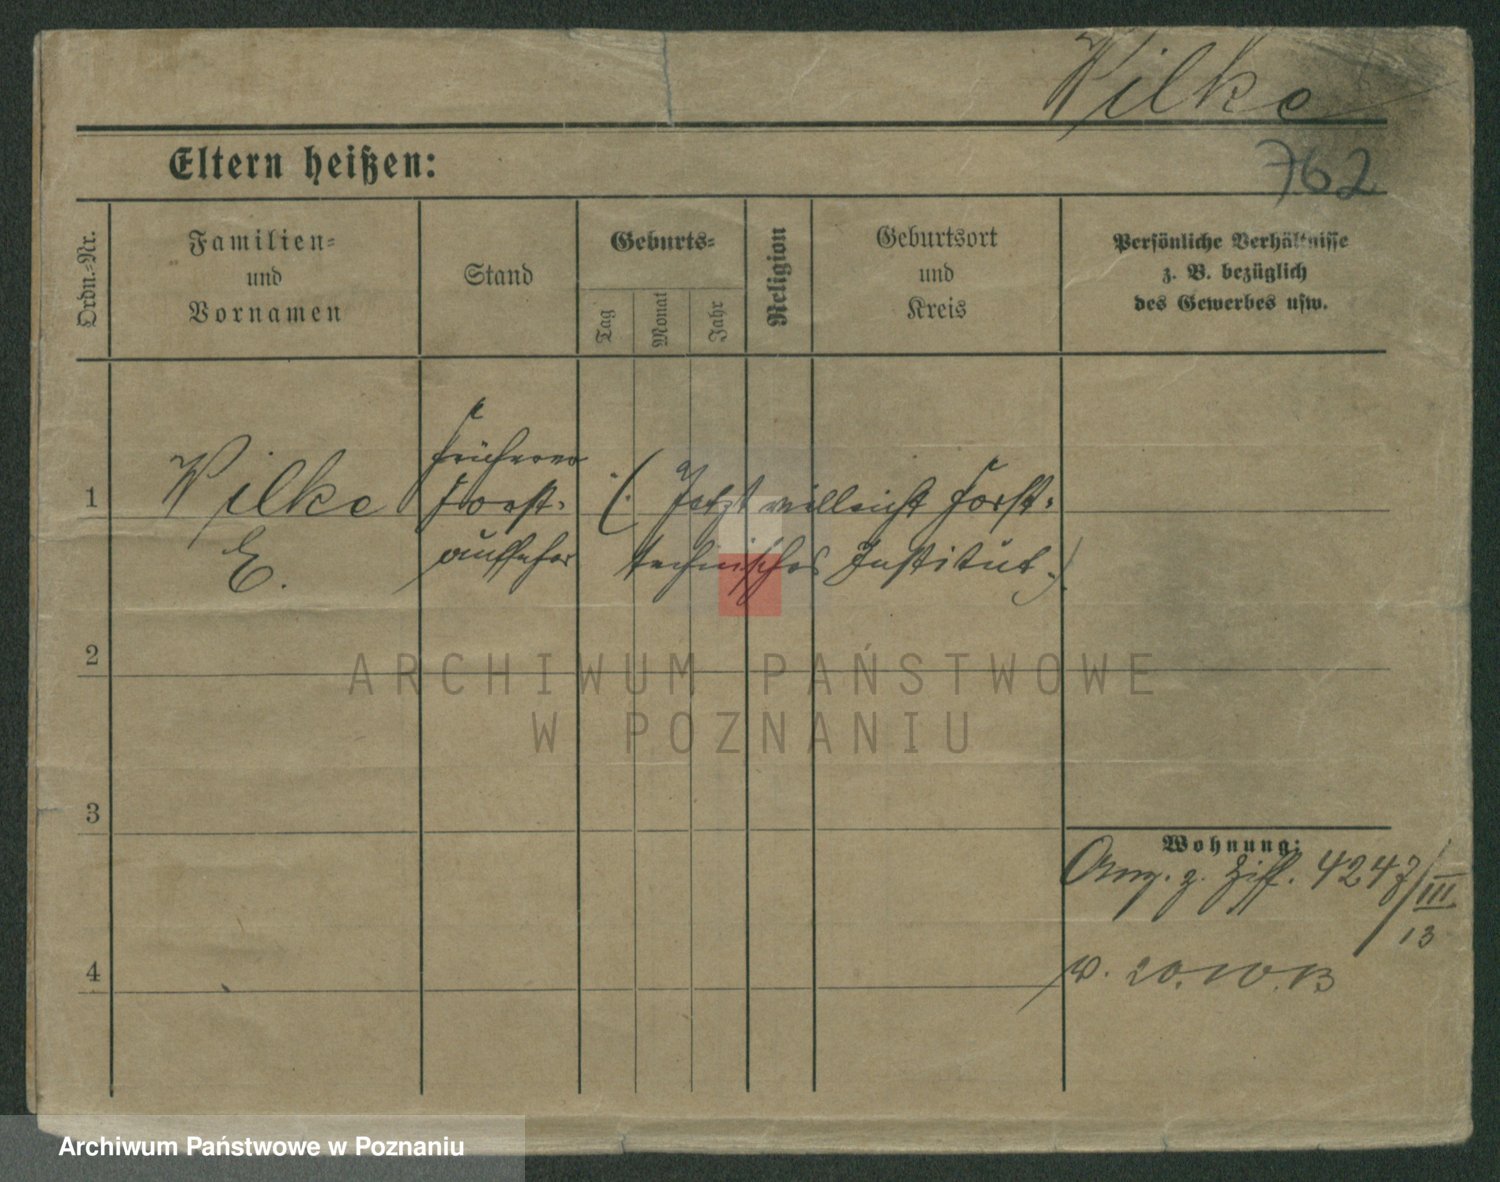 Wilke
762
Eltern heißen:
Ordn.-Nr.
Familien-
und
Vornamen
Stand
Geburts-
Tag
Monat
Jahr
Religion
Geburtsort
und
Kreis
Persönliche Verhältnisse
z. B. bezüglich
des Gewerbes usw.
1
Wilke
E.
früherer
Forst-
aufseher
(. Jetzt vielleicht Forst-
technisches Institut.)
2
ARCHIWUM PAŃSTWOWE
W POZNANIU
3
Wohnung:
Anz. z. Ziff. 4247/III
13
v. 20. 10. 13
4
Archiwum Państwowe w Poznaniu